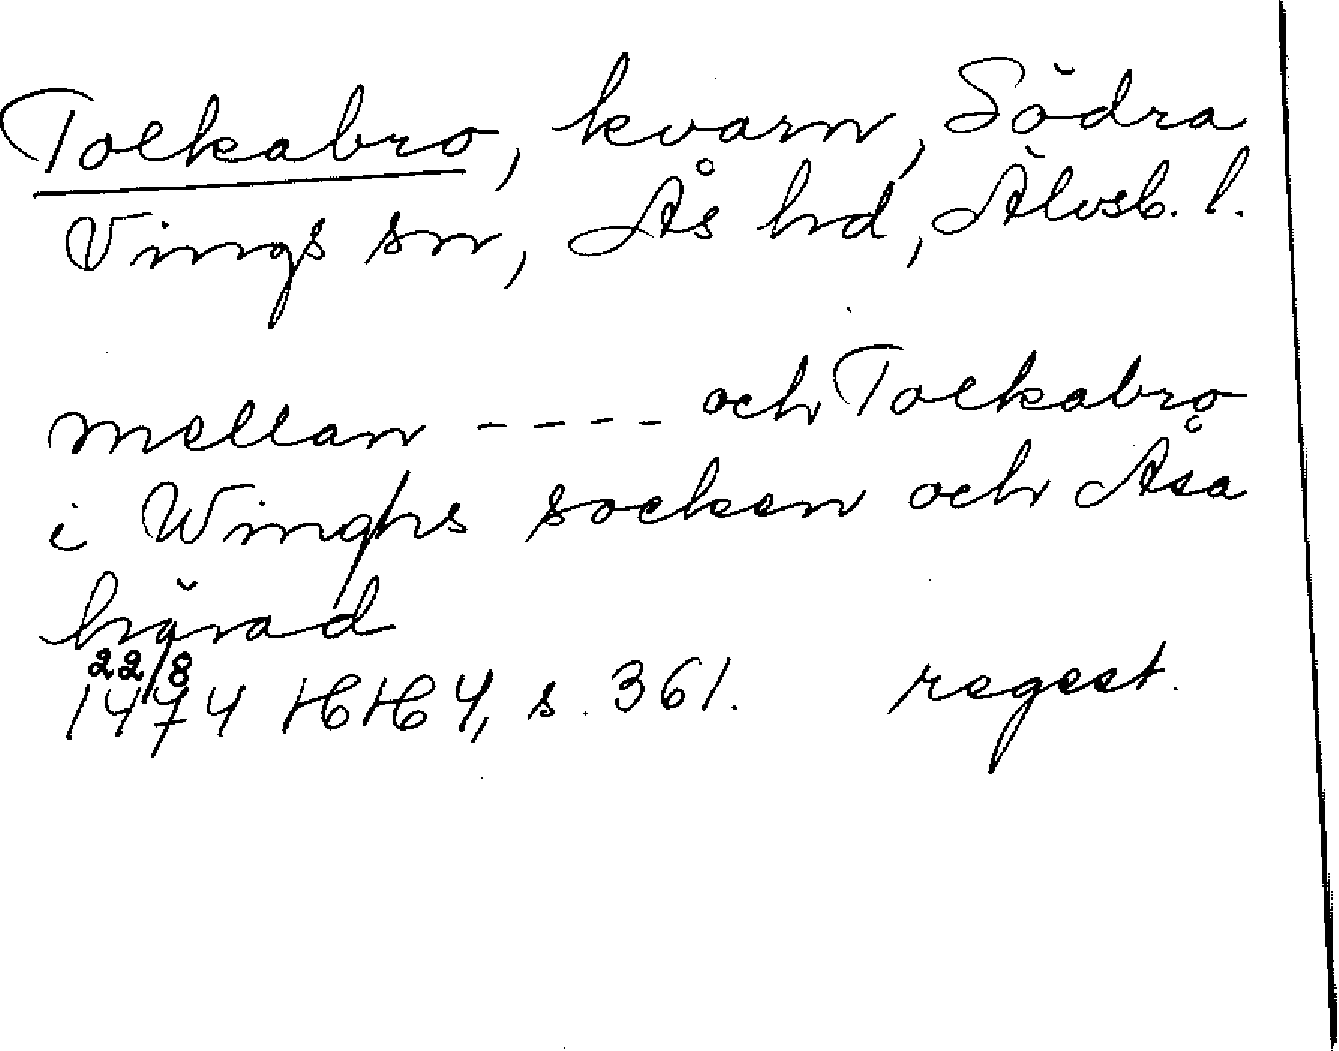 Tolkabro, kvarn, Södra
Vings sn, Ås hd, Älvsb. l.
mellan ---- och Tolkabro
i Winghs socken och Åsa
härad
22/8
1474 HH 4, s. 361. regest.